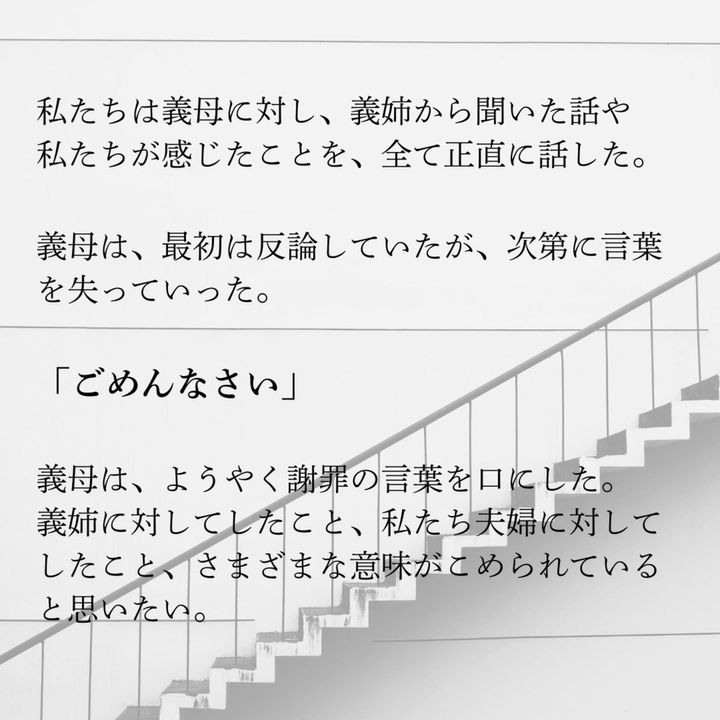 私たちは義母に対し、義姉から聞いた話や
私たちが感じたことを、全て正直に話した。
義母は、最初は反論していたが、次第に言葉
を失っていった。
「ごめんなさい」
義母は、ようやく謝罪の言葉を口にした。
義姉に対してしたこと、私たち夫婦に対して
したこと、さまざまな意味がこめられている
と思いたい。